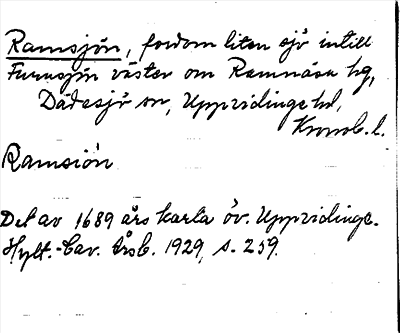 Ramsjön, fordom liten sjö intill
Furusjön väster om Ramnåsa hg,
Dädesjö sn, Uppvidinge hd,
Kronob. l.
Ramsiön
Del av 1689 års karta öv. Uppvidinge.
Hylt.-Cav. Årsb. 1929, s. 259.